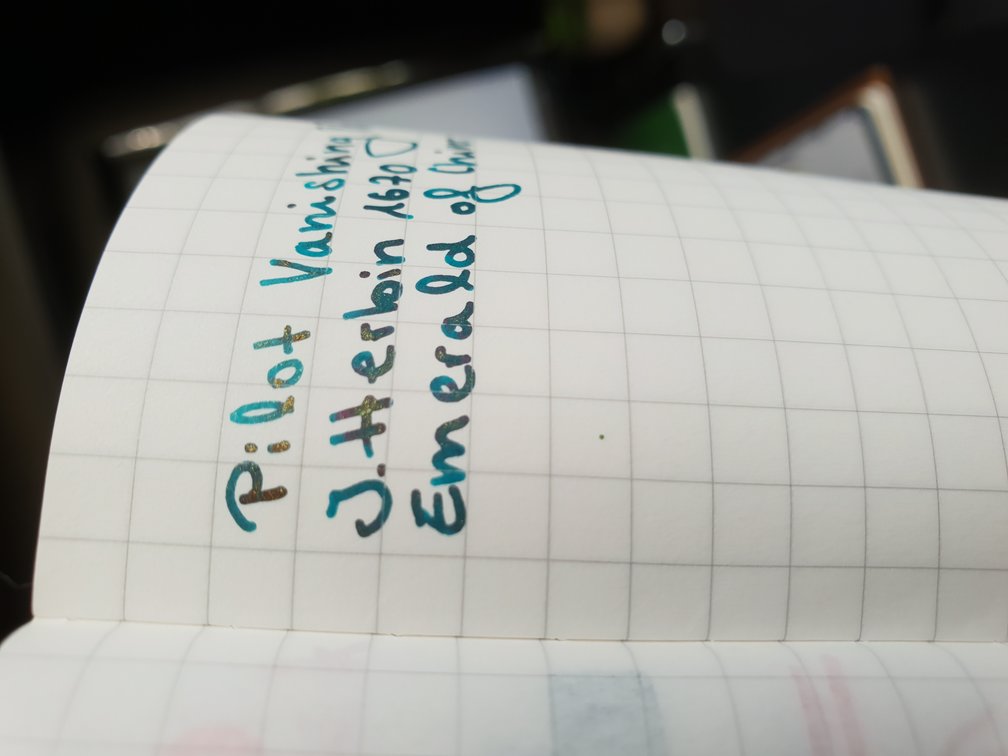 Pilot Vanishing
J. Herbin 1670
Emerald of